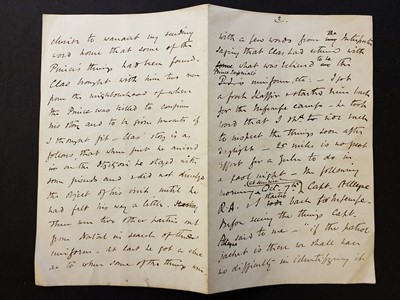 desire to warrant my sending
word home that some of the
Prince's things had been found.
Clas brought with him two men
from the neighbourhood of where
the Prince was killed to confirm
his story and to be given presents if
I thought fit - Clas' story is as
follows that when first he arrived
in on the he stayed with
some friends and did not divulge
the object of his visit until he
had felt his way a little.
There were two other parties out
from Natal in search of the
uniform - at last he got a clue
as to where some of the things were
2.
with a few words from the my Interpreter
saying that Clas had returned with
some what was believed to be the
Prince Imperial's
P.I.'s uniform. etc. - I got
a fresh Kaffir & started him back
for the Infusse camp - he took
word that I shd. be over
to inspect the things soon after
daylight - 25 miles is no great
effort for a Zulu to do in
a cool night - The following
morning Oct. 7th Capt. Alleyne
R.A. & I started back for Infusse -
Before seeing the things Capt.
Alleyne said to me - "if the patrol
jacket is there we shall have
no difficulty in identifying it